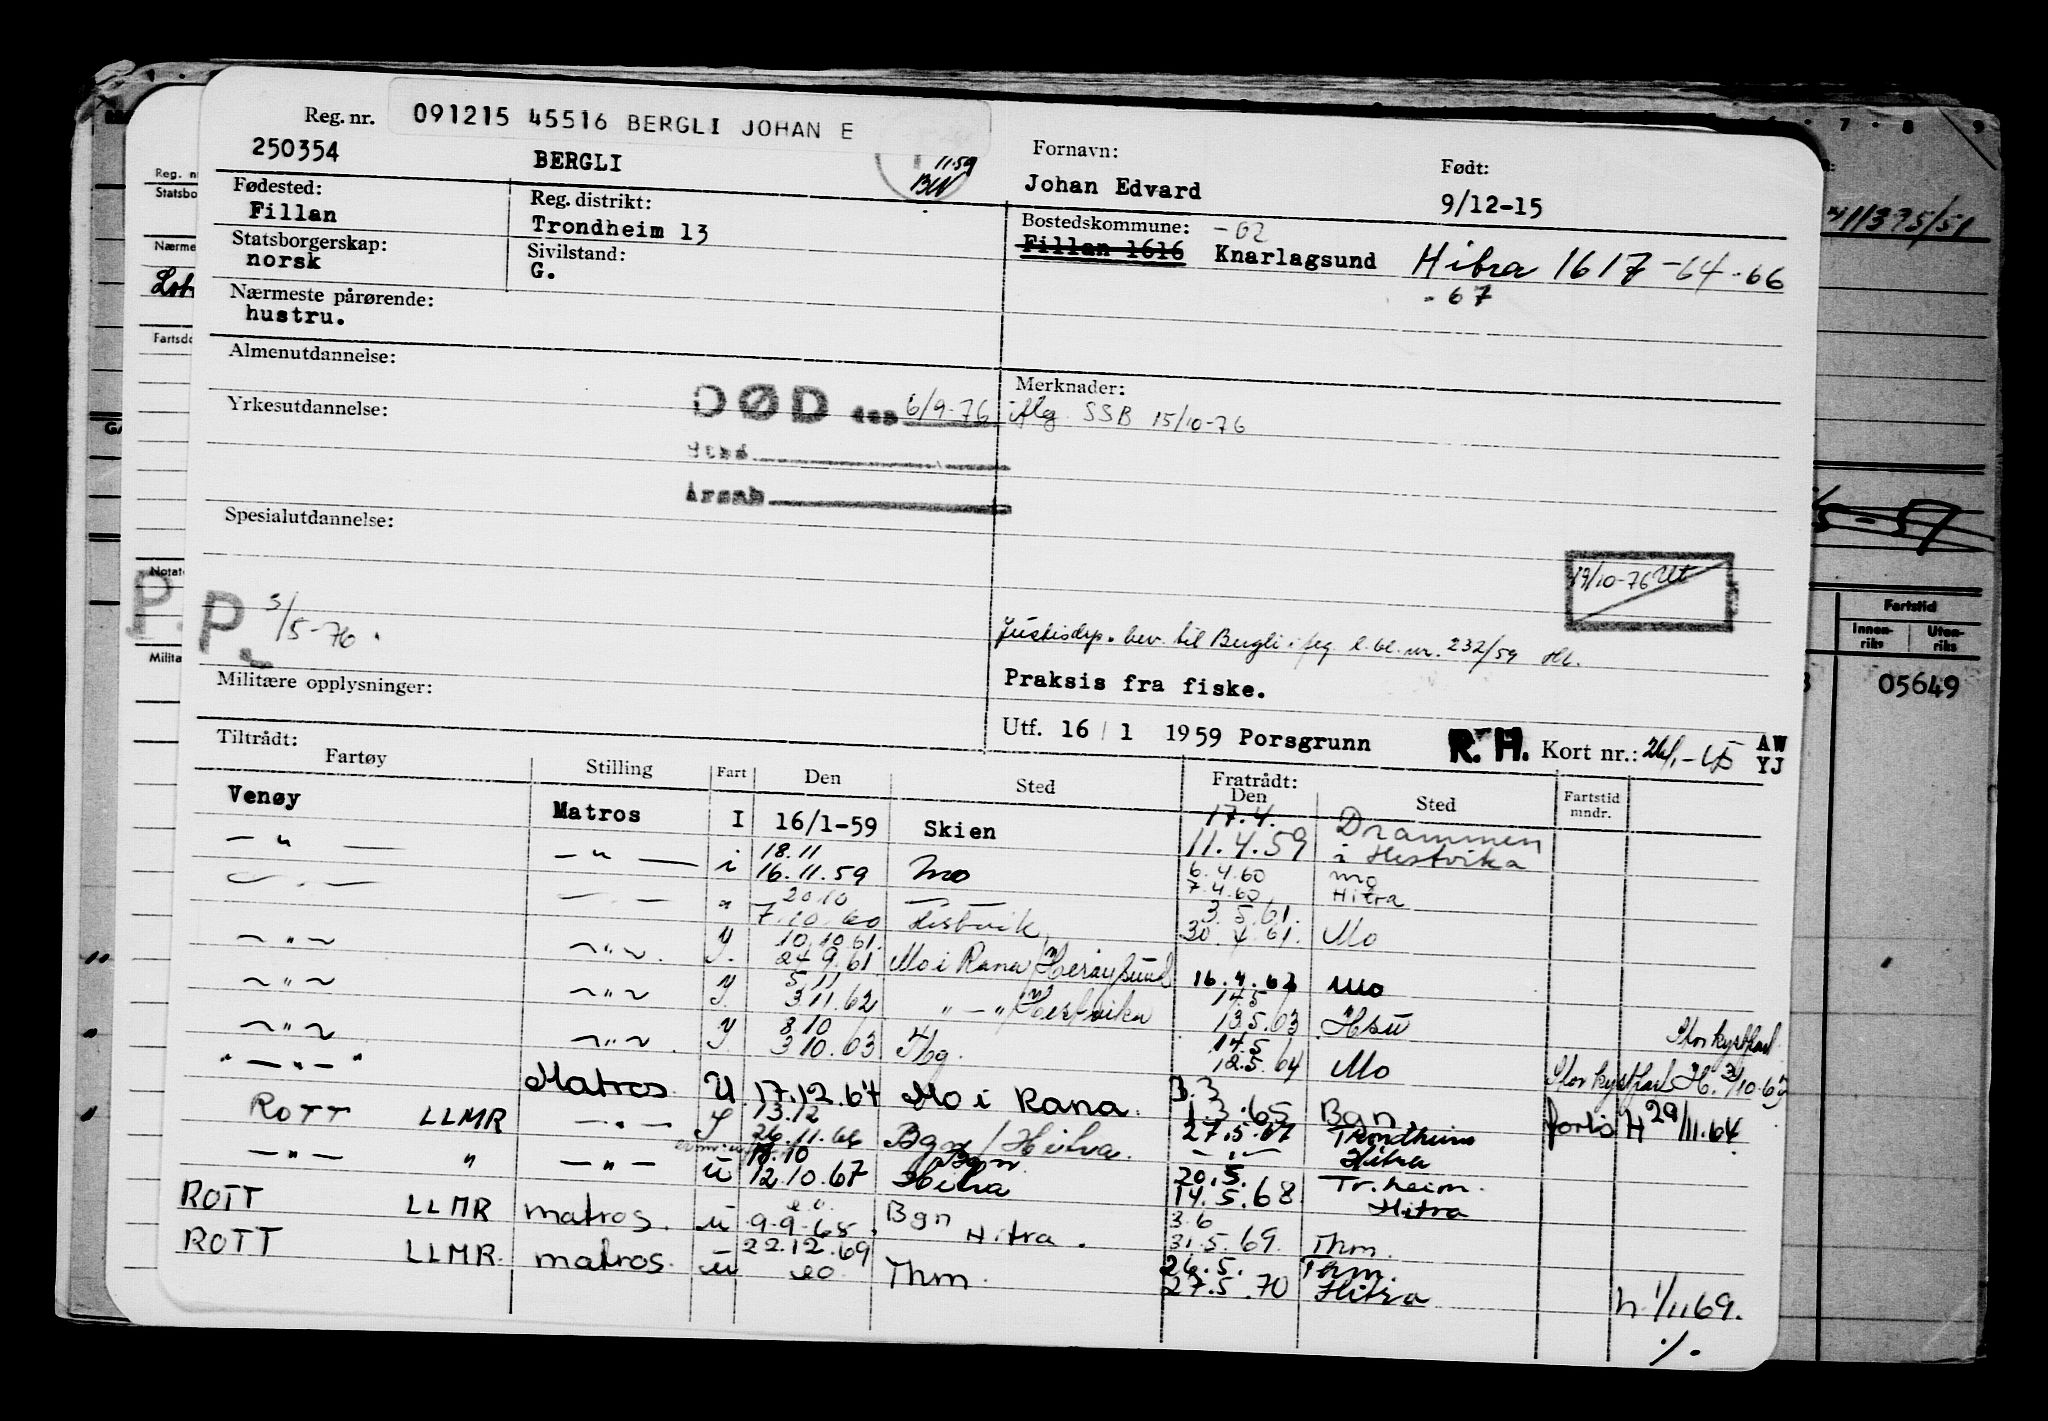 Reg. nr. 091215 45516 BERGLI JOHAN E
250354 BERGLI 11.59
Fornavn: Født:
Johan Edvard 9/12-15
Fødested: Reg. distrikt: Bostedskommune: -62
Fillan Trondheim 13 Fillan 1616 Knarlagsund Hitra 1617-64-66
-67
Statsborgerskap: Sivilstand:
norsk G.
Nærmeste pårørende:
hustru.
Almenutdannelse:
Merknader:
Yrkesutdannelse: DØD den 6/9-76 iflg. SSB 15/10-76
Sted
Årsak
Spesialutdannelse:
19/10-76 Ut
P. 3/5-76.
Justisdep. bev. til Bergli i flg l.bl.nr. 232/59
Militære opplysninger: Praksis fra fiske.
Utf. 16/1 1959 Porsgrunn R.H. Kort nr.: AW
YJ
Tiltrådt: Fratrådt:
Fartøy Stilling Fart Den Sted Den Sted Fartstid
mndr.
Venøy Matros I 16/1-59 Skien 17.4. Drammen
11.4.59 i Hestvika
— " — — " — i 18.11 6.4.60 Mo
16.11.59 Mo 7.4.60 Hitra
20.10 3.5.61.
7.10.60 Hestvik 30.4.61. Mo
~ " ~ ~ " ~ 10.10.61.
24.9.61 Mo i Rana / Herøysund 16.4.62 Mo
~ " ~ ~ " ~ 5.11 14.5
3.11.62 " — " / Hestvika 13.5.63
~ " ~ ~ " ~ 8.10 14.5
3.10.63 12.5.64 Mo
Stor kystfart
" — " — " Matros U 17.12.64 Mo i Rana. 3.3
1.3.65 Bgn.
Stor kystfart H. 3/10.63
ROTT LLMR — " — 13.12
26.11.66 Bgn / Hitra. 27.5.67 Trondheim
Hitra
H 29/11.64
— " — " — " — U 18.10 Bgn 20.5. Tr.heim.
12.10.67 Hitra 14.5.68 Hitra
ROTT LLMR matros. u 9.9.68. Bgn 3.6
Hitra. 31.5.69. Thm.
ROTT LLMR. matros. u 22.12.69 Thm. 26.5. Thm.
27.5.70 Hitra
h. 1/1169.
./.
Reg. n
Statsbo
Nærme
Fartsdo
Notat
P.
Milita
411375/51
5-57
Fartstid
Innen-
riks Uten-
riks
05649
7 8 9